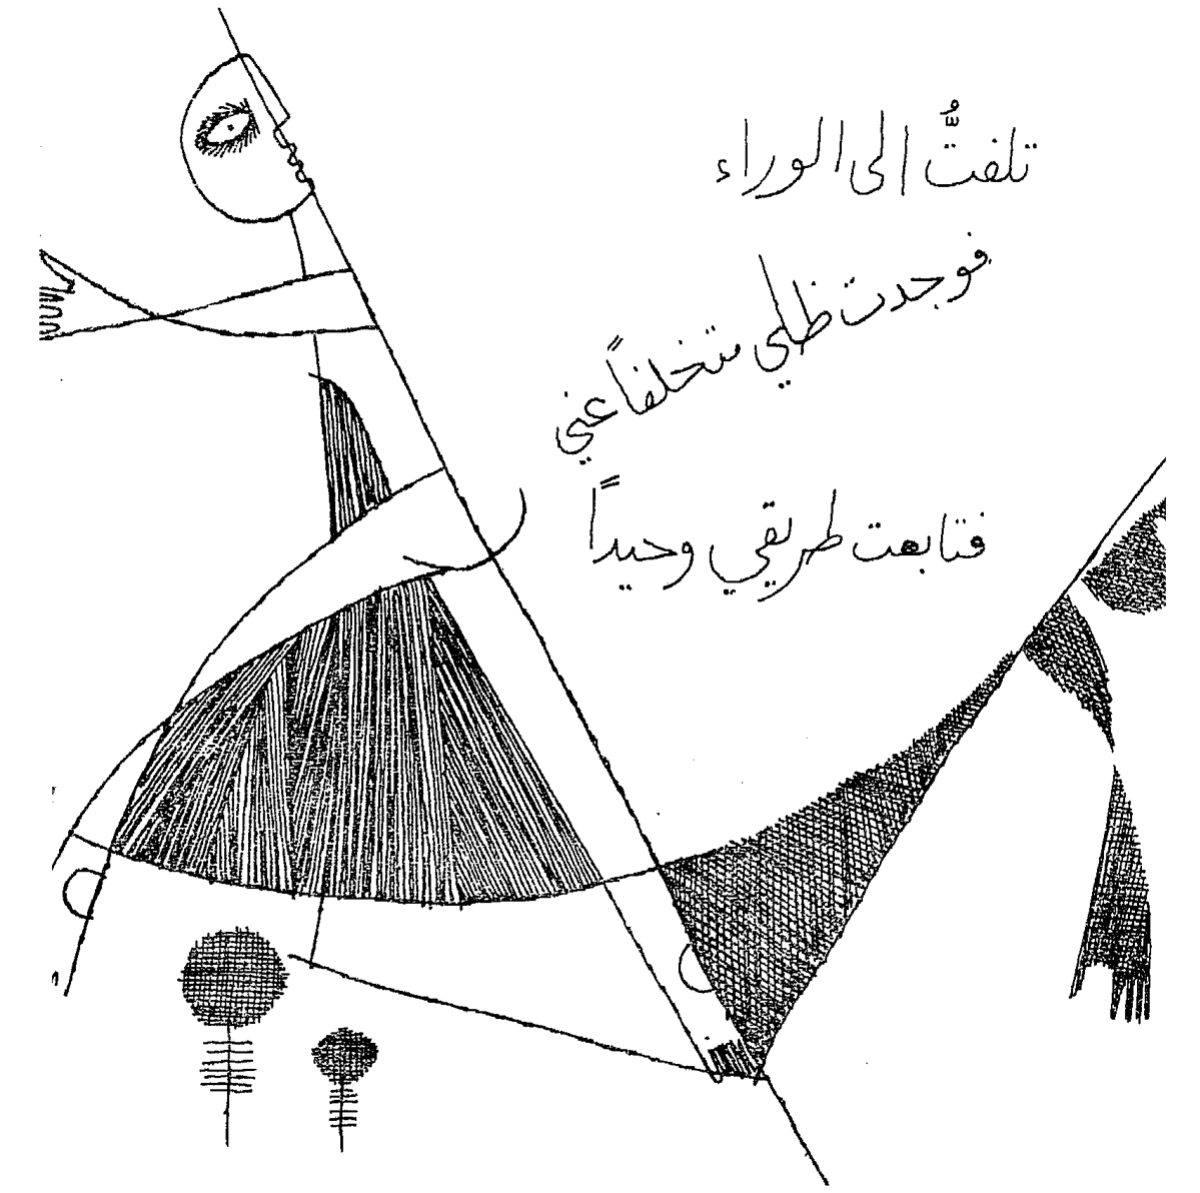 تلفتُّ الى الوراء
فوجدت ظلي متخلفاً عني
فتابعت طريقي وحيداً